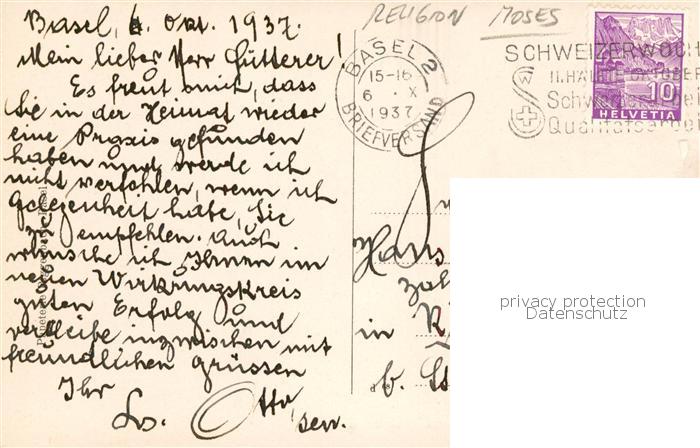 Basel, 6. Okt. 1937.
Mein lieber Herr Gütterer!
Es freut mich, dass
Sie in der Heimat wieder
eine Praxis gefunden
haben und werde ich
nicht verfehlen, wenn ich
Gelegenheit habe, Sie
zu empfehlen. Auch
wünsche ich Ihnen im
neuen Wirkungskreis
guten Erfolg und
verbleibe inzwischen mit
freundlichen Grüssen
Ihr
Ls. Otto,
sen.
RELIGION MOSES
BASEL 2
15-16
6 · X
1937
BRIEFVERSAND
SCHWEIZERWOCH
II. HÄLFTE OKTOBER
Qualitätsarbei
10
HELVETIA
Hans
in
b. St
privacy protection
Datenschutz